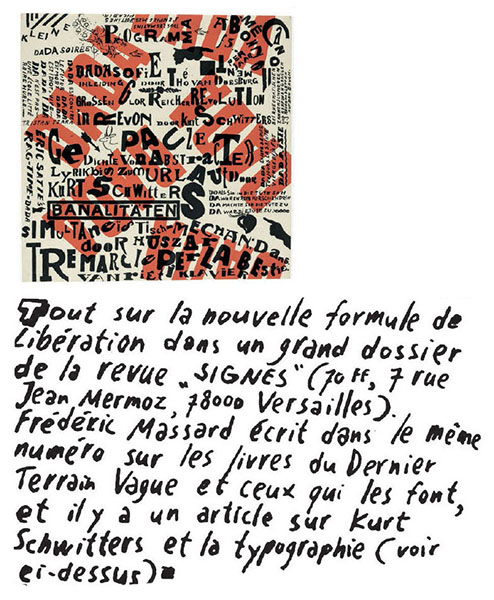 KLEINE
DADA SOIRÉE
PROGRAMMA
DADASOFIE
INLEIDING DOOR THEO VAN DOESBURG
GROSSEN GLORREICHE REVOLUTION
IN REVON DOOR KURT SCHWITTERS
PAUZE
GEDICHTE VON ABSTRA(C)TE
LYRIK BIS ZUM URLAUT DOOR
KURT SCHWITTERS
BANALITÄTEN
SIMULTANEIO TISCH-MECHAN. Dans
door HUSZAR
TREMARCIE PER LA BESTIE
VAN RIETI KLAVIER
ERIC SATIE'S
RAG-TIME-DADA
Tout sur la nouvelle formule de
Libération dans un grand dossier
de la revue „SIGNES" (70 FF, 7 rue
Jean Mermoz, 78000 Versailles).
Frédéric Massard écrit dans le même
numéro sur les livres du Dernier
Terrain Vague et ceux qui les font,
et il y a un article sur Kurt
Schwitters et la typographie (voir
ci-dessus)